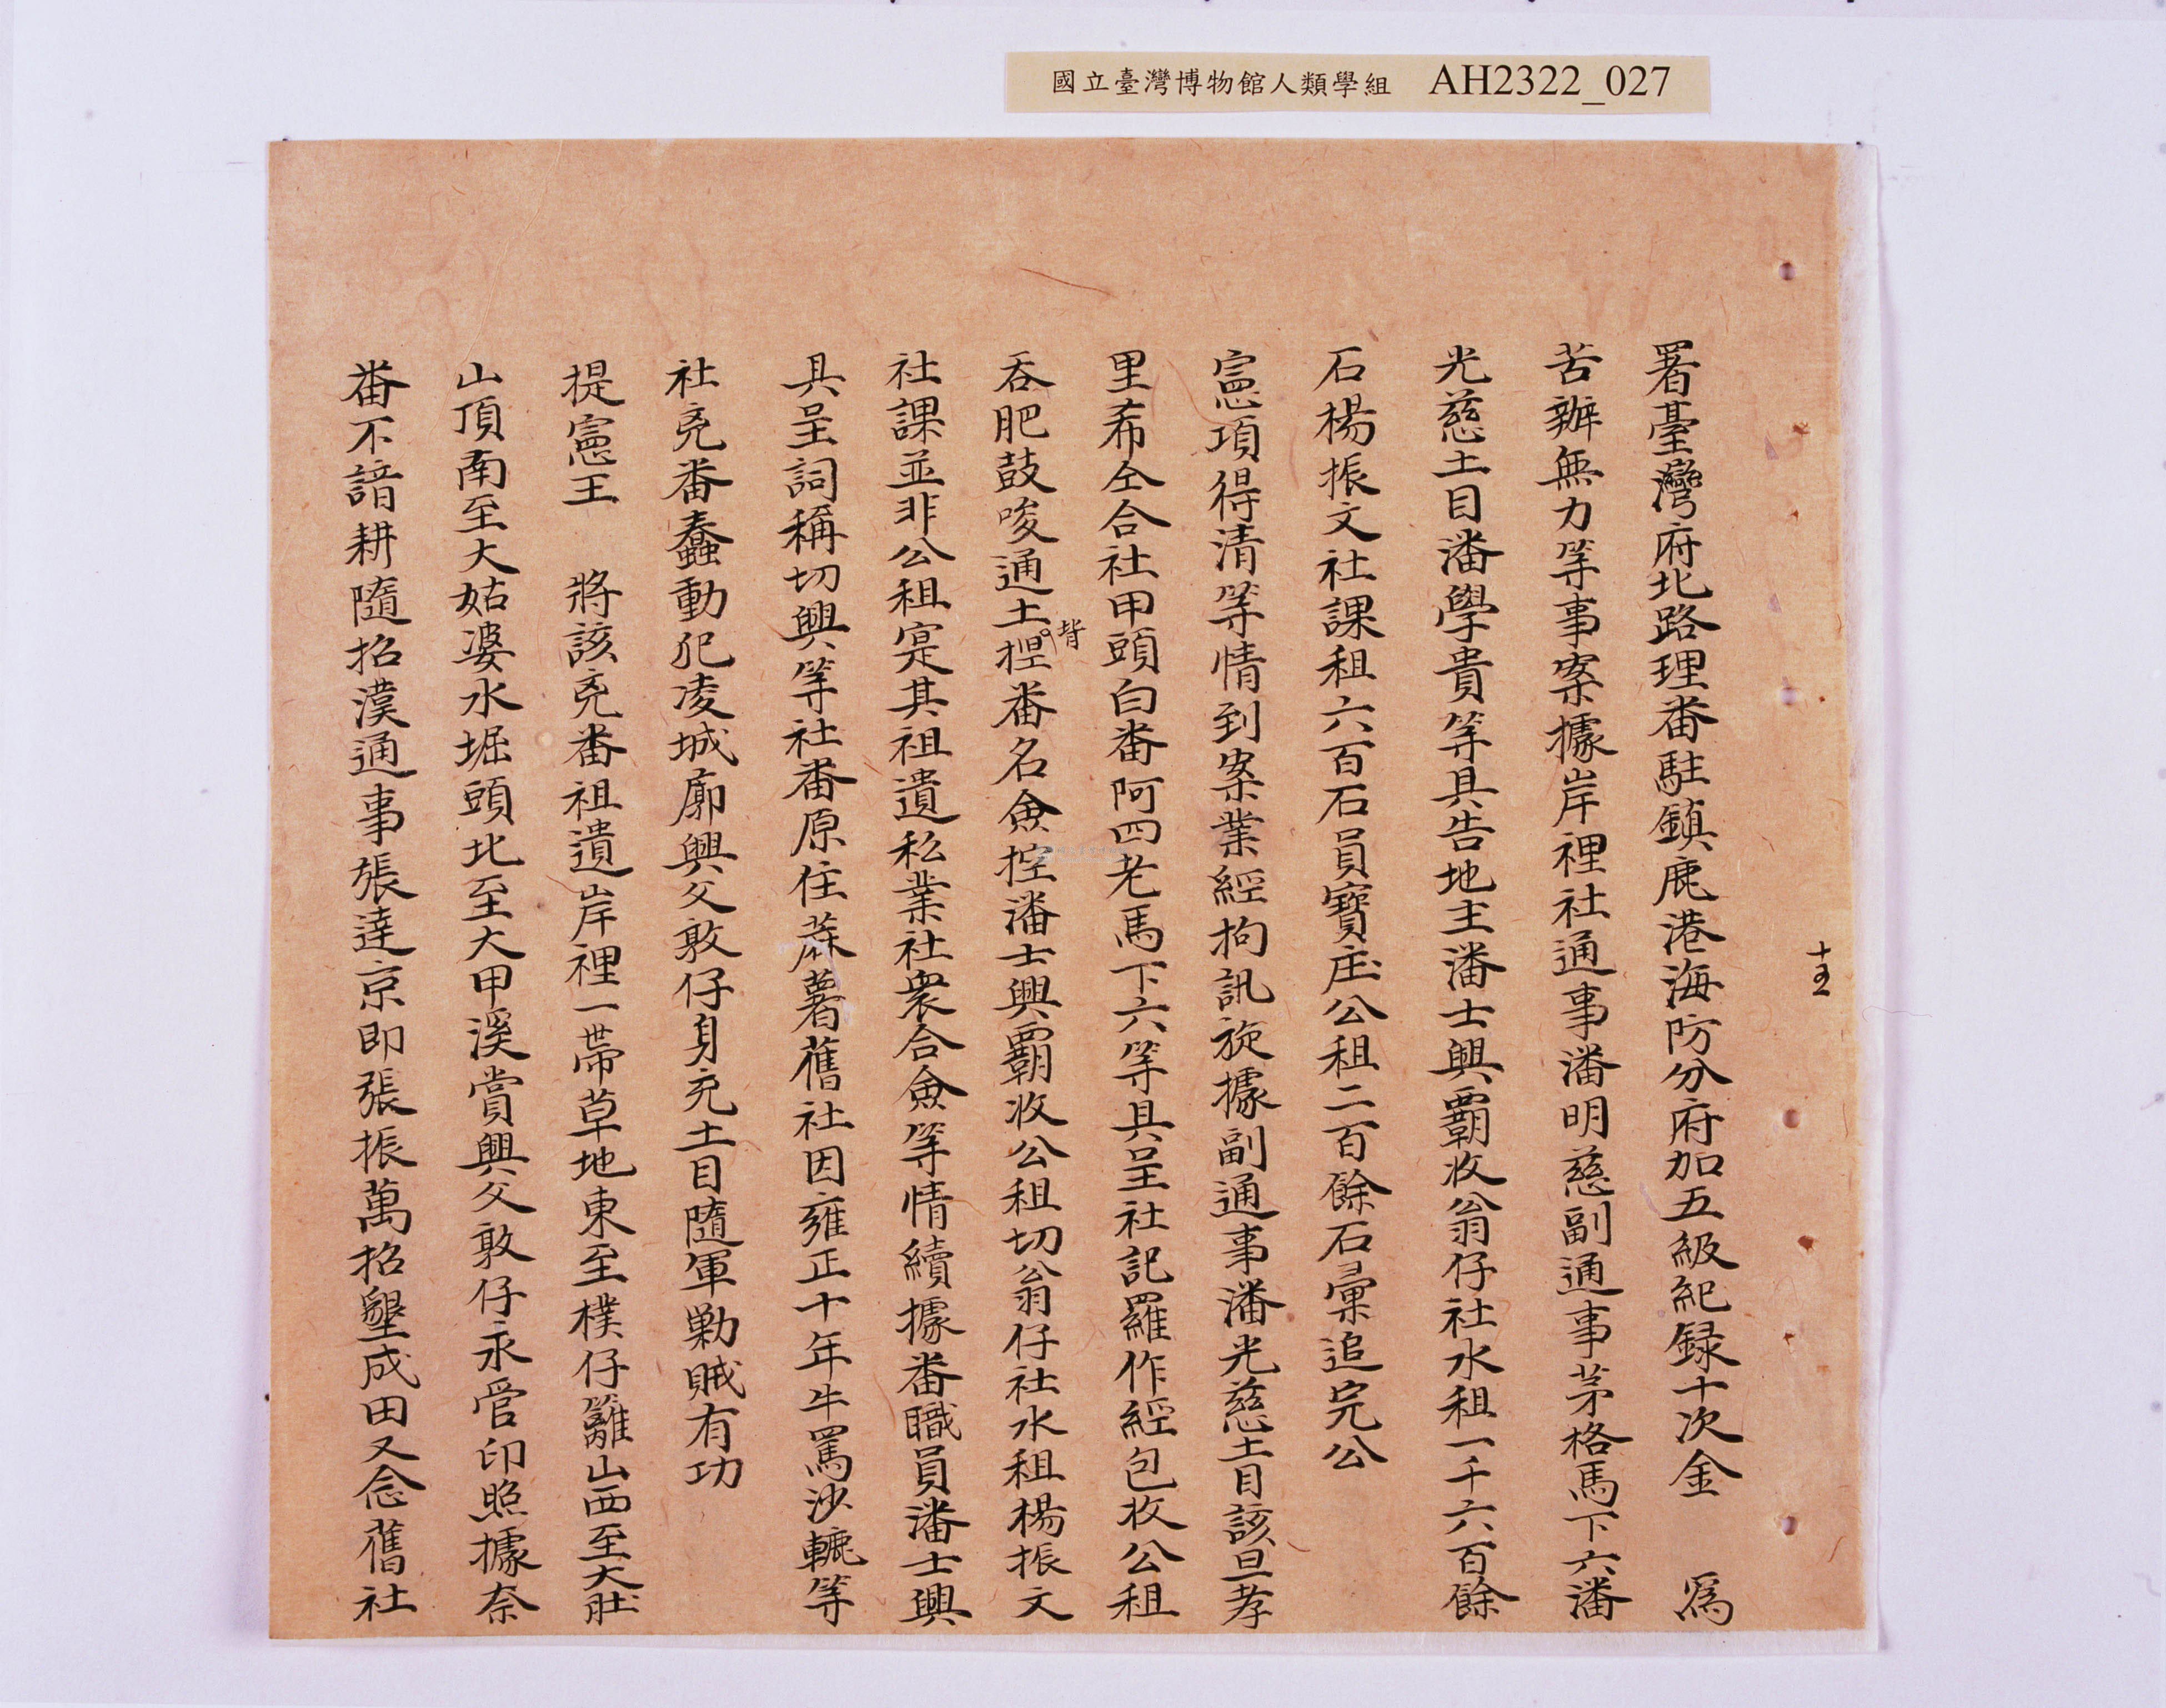 國立臺灣博物館人類學組 AH2322_027
十五
署臺灣府北路理番駐鎮鹿港海防分府加五級紀録十次金 爲
苦辦無力等事案據岸裡社通事潘明慈副通事茅格馬下六潘
光慈土目潘學貴等具告地主潘士興覇收翁仔社水租一千六百餘
石楊振文社課租六百石員寶庄公租二百餘石彙追完公
憲項得清等情到案業經拘訊旋據副通事潘光慈土目該旦孝
里希仝合社甲頭白番阿四老馬下六等具呈社記羅作經包收公租
吞肥鼓唆通土捏番名僉控潘士興覇收公租切翁仔社水租楊振文
背
社課並非公租寔其祖遺私業社衆合僉等情續據番職員潘士興
具呈詞稱切興等社番原住蔴薯舊社因雍正十年牛罵沙轆等
社兇番蠢動犯凌城廓興父敦仔身充土目隨軍勦賊有功
提憲王 將該兇番祖遺岸裡一帶草地東至樸仔籬山西至大肚
山頂南至大姑婆水堀頭北至大甲溪賞興父敦仔永管印照據奈
番不諳耕隨招漢通事張達京即張振萬招墾成田又念舊社